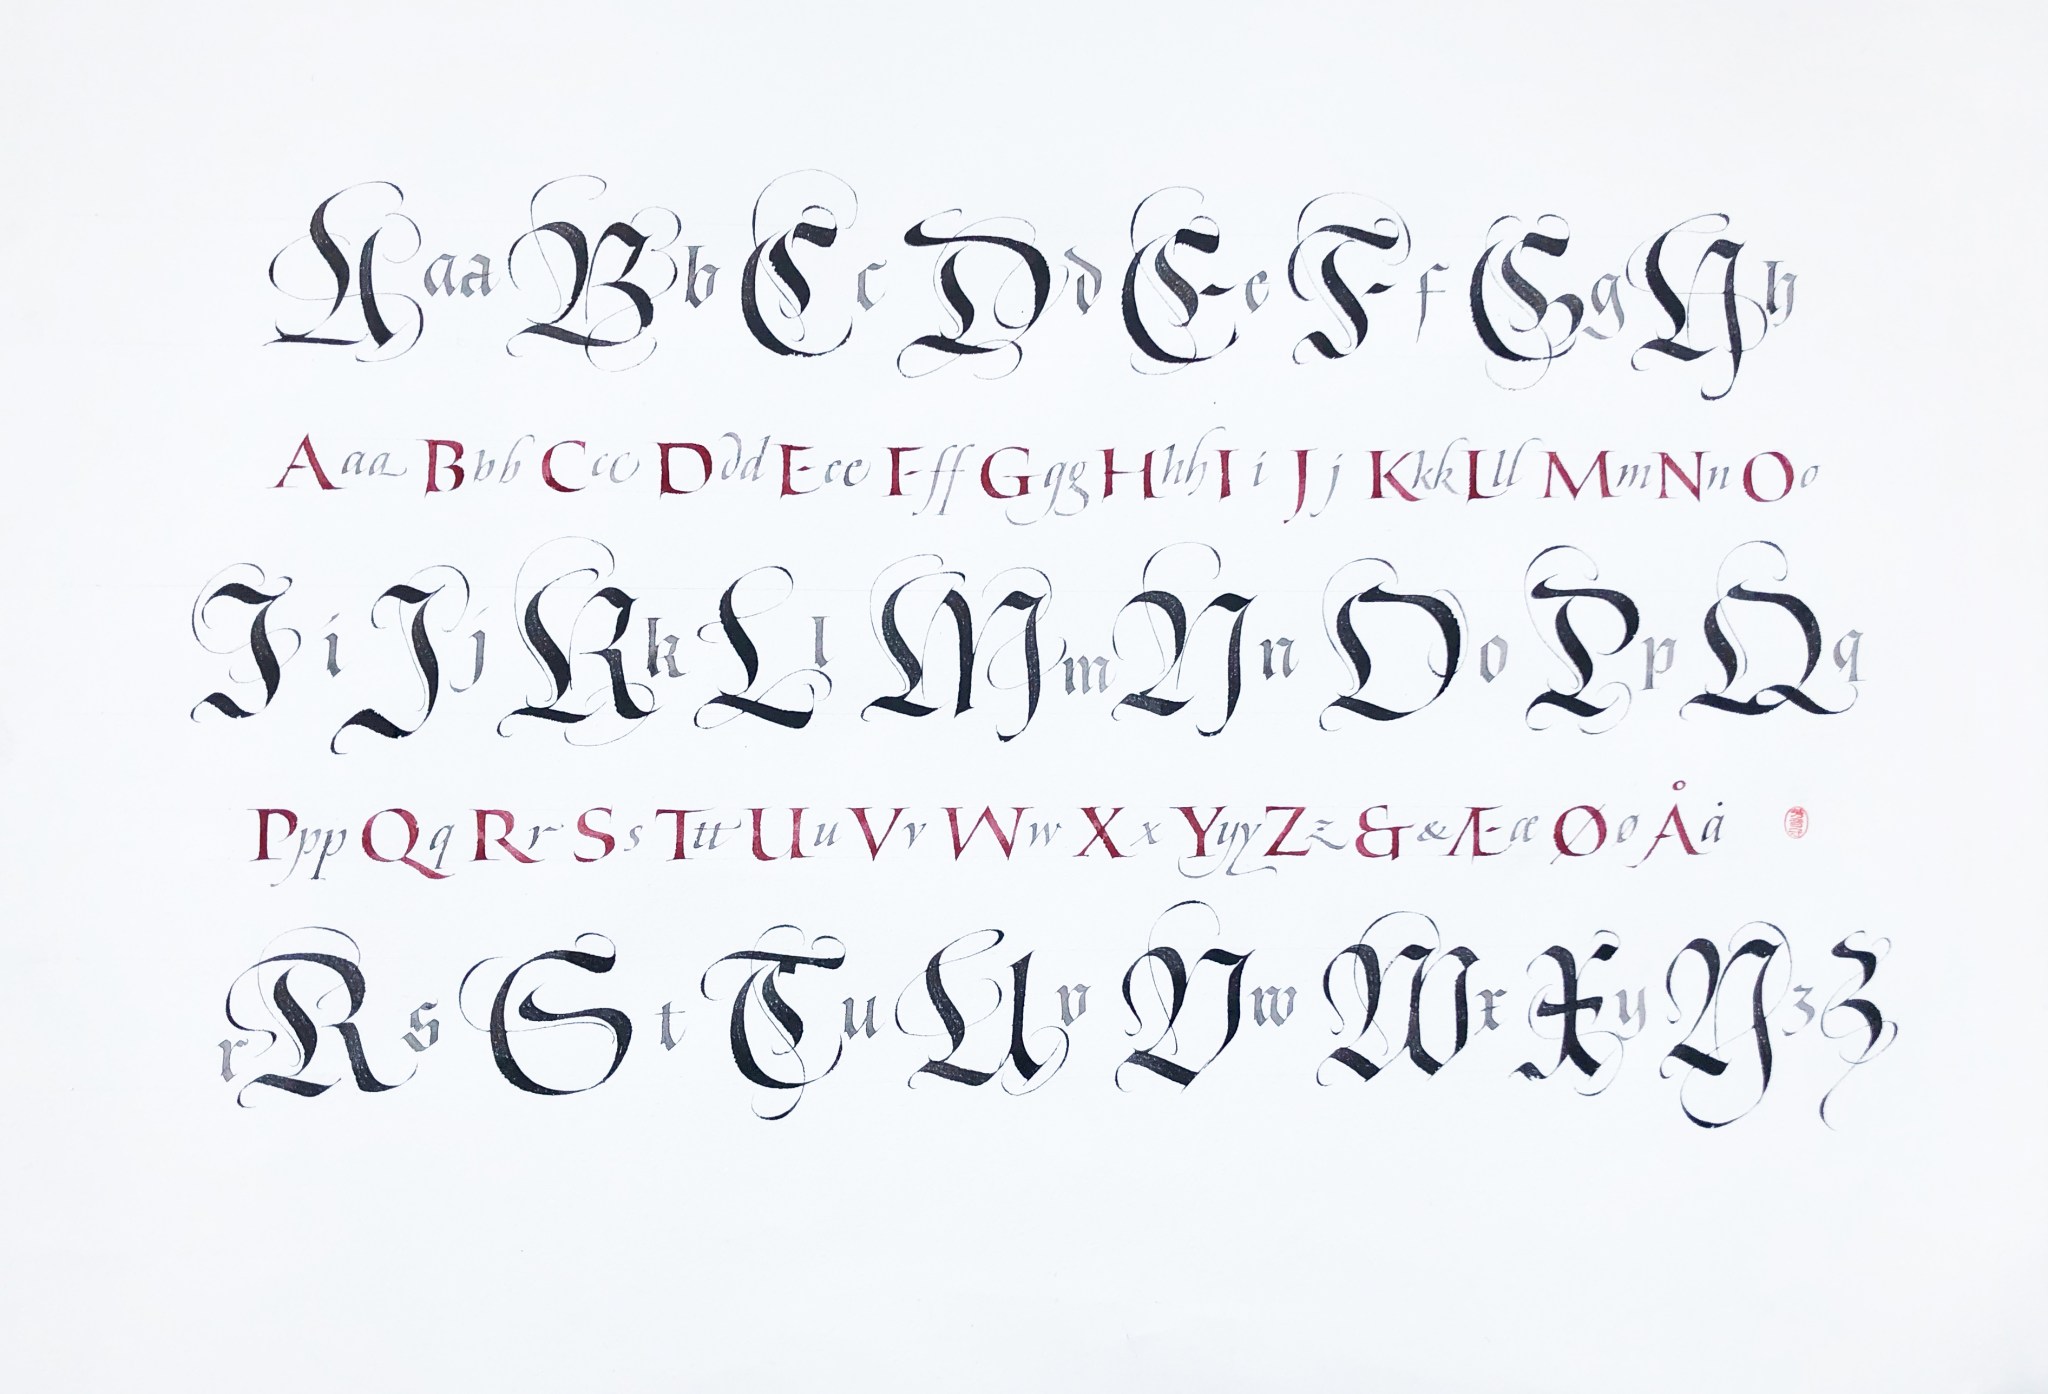 A aa B b C c D d E e F f G g H h
A aa B bb C cc D dd E ee F ff G gg H hh I i J j K kk L ll M m N n O o
I i J j K k L l M m N n O o P p Q q
P pp Q q R r S s T tt U u V v W w X x Y yy Z z & & Æ æ Ø ø Å å
r R s S t T u U v V w W x X y Y z Z